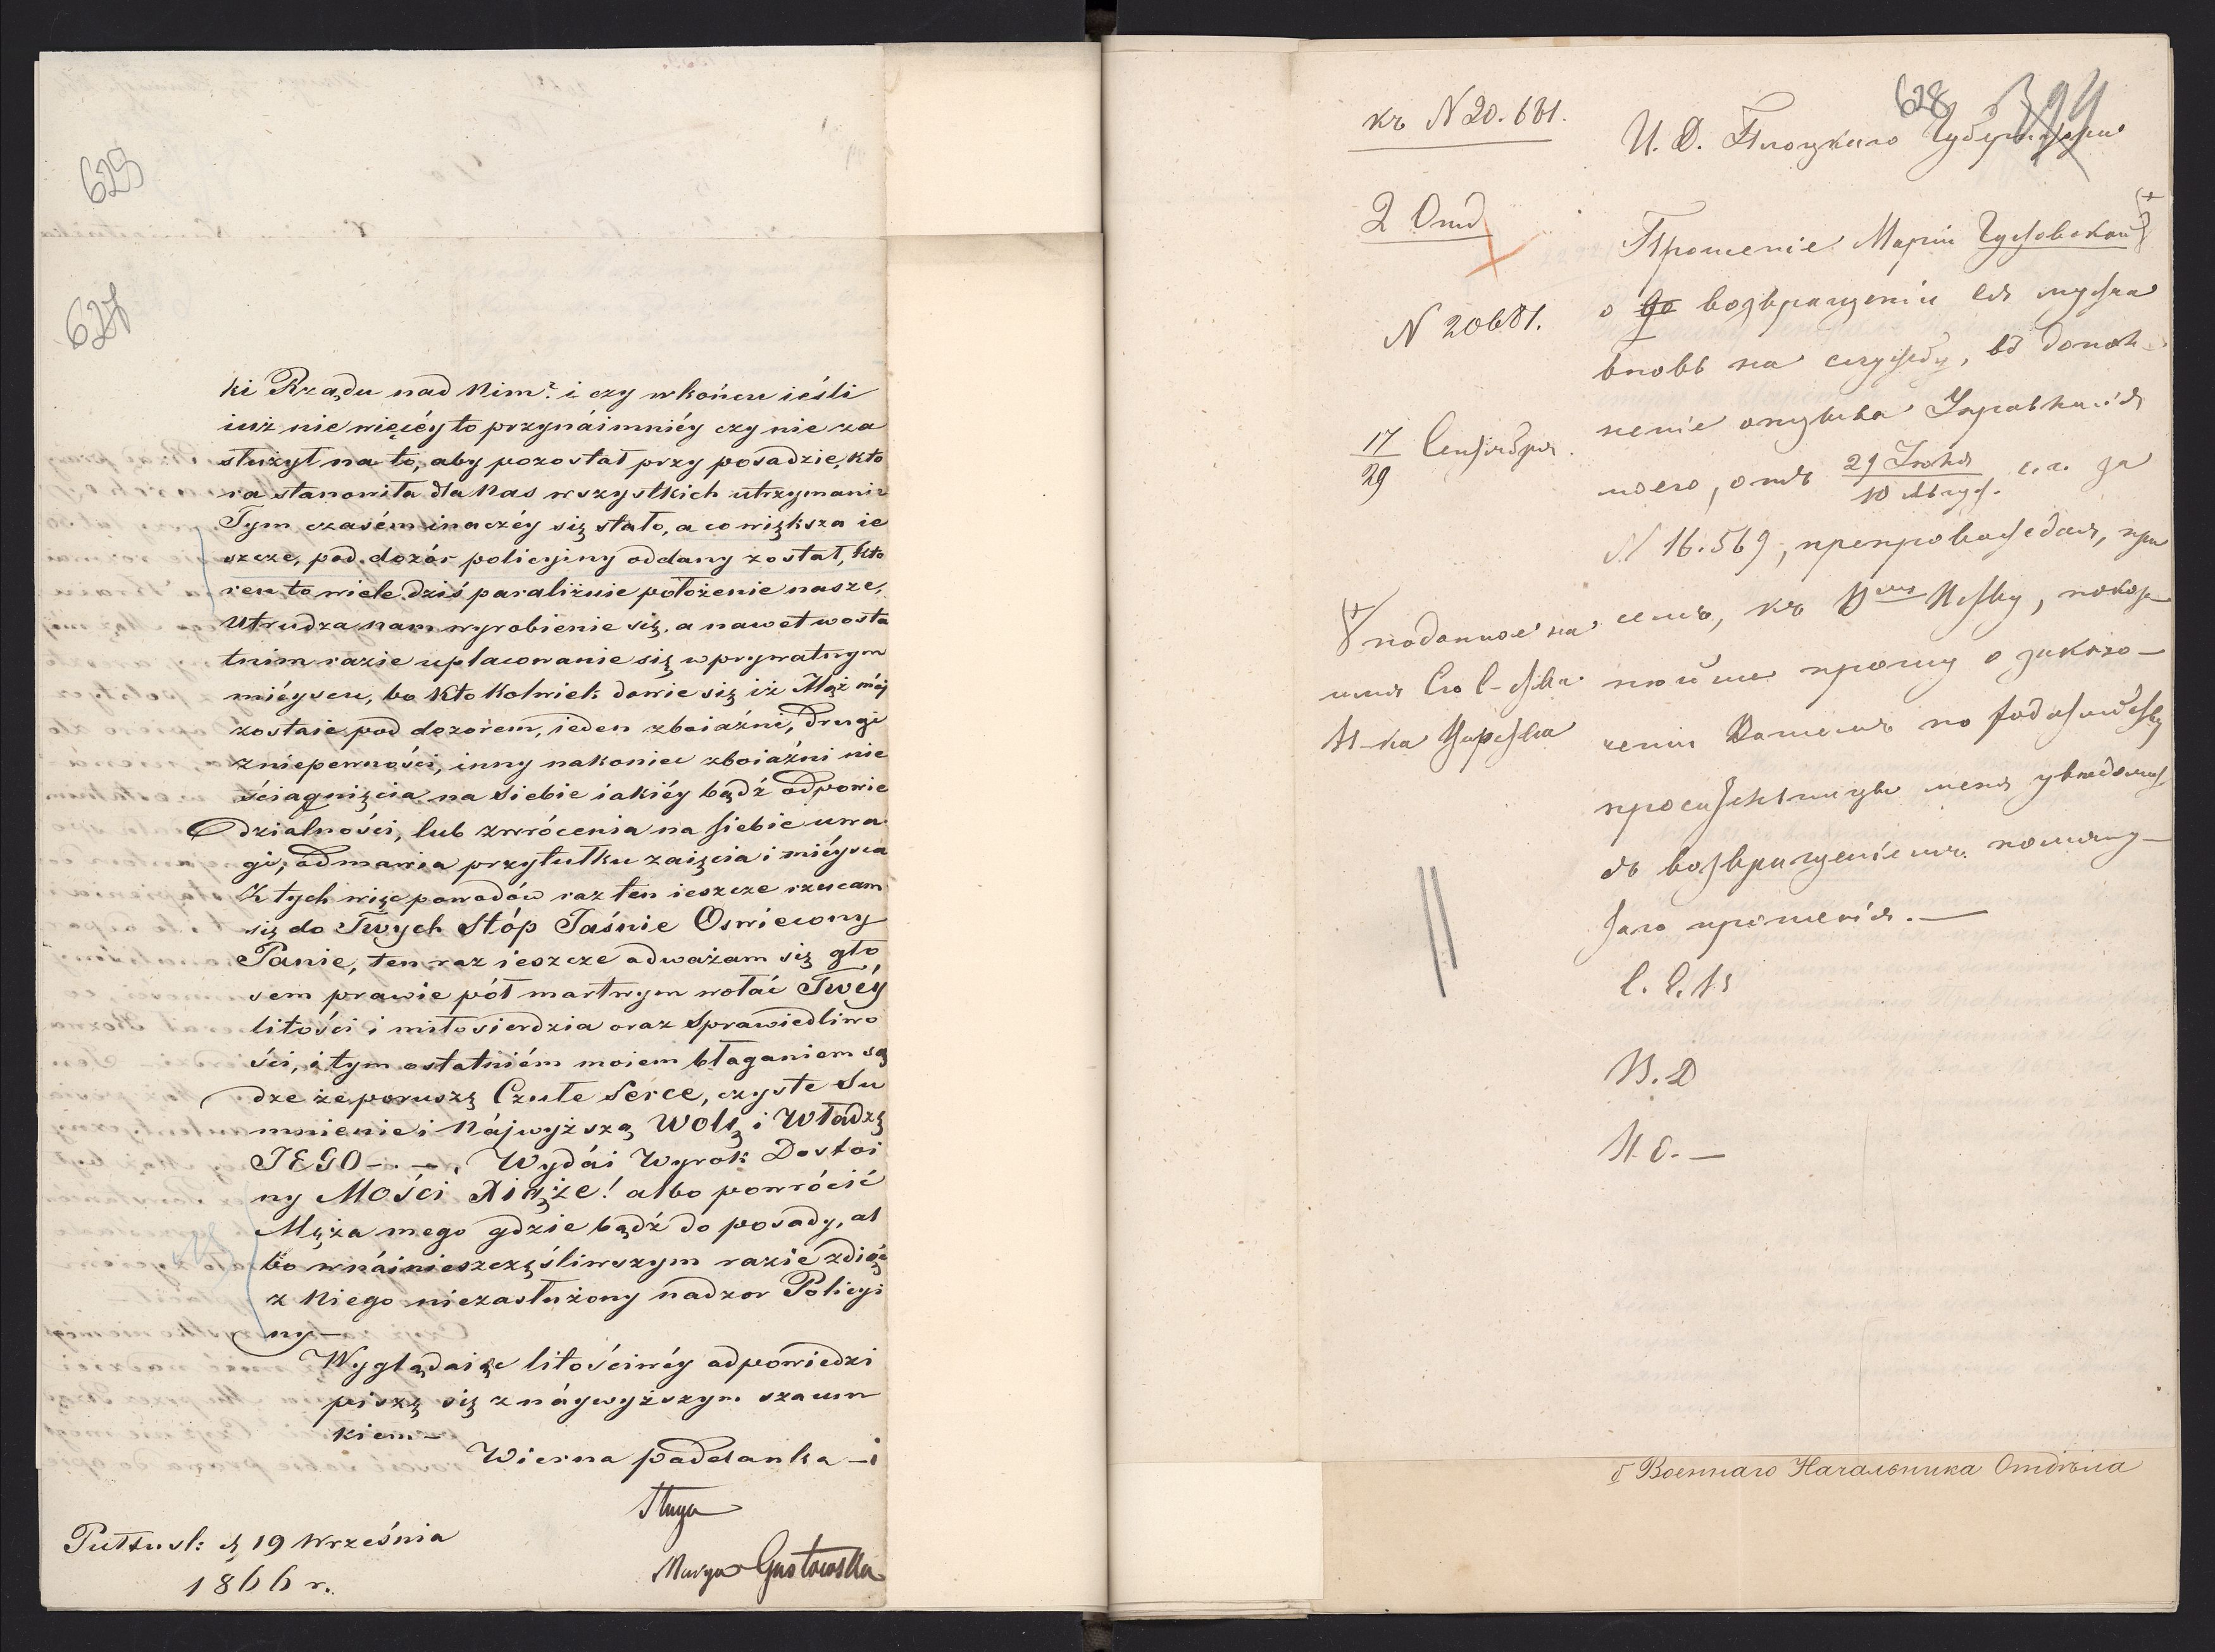 629
627
ki Rządu nad Nim? i czy w końcu ieśli
iuż nie więcéy to przynáimniéy czy nie za
służył na to, aby pozostał przy posadzie, kto
ra stanowiła dla Nas wszystkich utrzymanie
Tym czasém inaczéy się stało, a co większa ie
szcze, pod dozór policyiny oddany został, kto
ren to wiele dziś paraliżuie położenie nasze,
Utrudza nam wyrobienie się, a nawet w osta
tnim razie uplacowanie się w prywatnym
miéyscu, bo kto kolwiek dowie się iż Mąż mój
zostaie pod dozorem, ieden zboiaźni, drugi
z niepewności, inny nakoniec zboiaźni nie
ściągnięcia na Siebie iakiéy bądź odpowie
dzialności, lub zwrócenia na siebie uwa
gi, odmawia przytułku zaięcia i miéysca
Z tych więc powodów raz ten ieszcze rzucam
się do Twych Stóp Jaśnie Oswiecony
Panie, ten raz ieszcze odważam się gło
sem prawie pół martwym wołać Twéy
litości i miłosierdzia oraz Sprawiedliwo
ści, i tym ostatniém moiem błaganiem są
dze że poruszę Czułe Serce, czyste Su
mnienie i Nájwyższą Wolę i Władzę
JEGO -.-. Wydái Wyrok Dostoi
ny Mości Xiąże! albo powrócić
Męża mego gdzie bądź do posady, al
bo w náinieszczęśliwszym razie zdiąć
z Niego niezasłużony nadzor Policyi
ny—
Wyglądaiąc litościwéy odpowiedzi
piszę się z náywyższym szacun
kiem—
Wierna poddanka – i
Sługa
Marya Gustowska
Pułtusk: d 19 Września
1866 r.
къ N 20.681.
628
394
И. Д. Плоцкаго Губернатора
2 Отд
Прошеніе Маріи Густовской
N 20681.
о возвращеніи ея мужа
вновь на службу, въ допол-
17/29 Сентября.
неніе отзыва Управленія
моего, отъ 29 Июля/10 Август. с.г. за
N 16.569, препровождая, при
поданное на
семъ, къ Вашему
, покор
имя Его С-ства
нѣйше прошу о заклю-
Н-ка Царства
ченіи Вашемъ по
просительницы меня увѣдомит
съ возвращеніемъ помяну-
таго прошенія.—
В. Д
Н. О.—
Военнаго Начальника Отдѣла